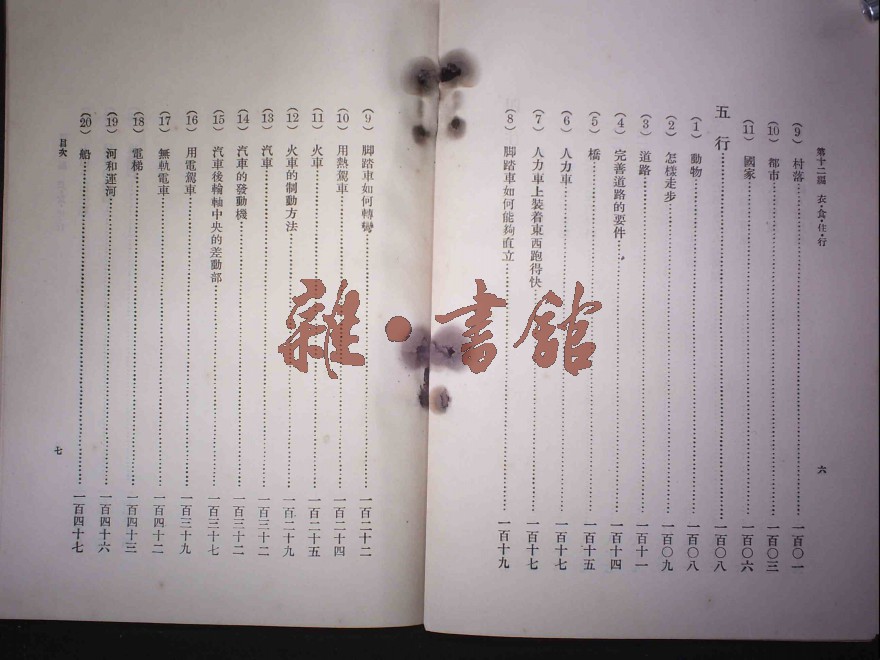 第十二編 衣·食·住·行
六
(9) 村落……一百〇一
(10) 都市……一百〇三
(11) 國家……一百〇六
五 行……一百〇八
(1) 動物……一百〇八
(2) 怎樣走步……一百〇九
(3) 道路……一百十一
(4) 完善道路的要件……一百十四
(5) 橋……一百十五
(6) 人力車……一百十七
(7) 人力車上裝着東西跑得快……一百十七
(8) 脚踏車如何能夠直立……一百十九
(9) 脚踏車如何轉彎……一百二十二
(10) 用熱駕車……一百二十四
(11) 火車……一百二十五
(12) 火車的制動方法……一百二十九
(13) 汽車……一百三十二
(14) 汽車的發動機……一百三十二
(15) 汽車後輪軸中央的差動部……一百三十七
(16) 用電駕車……一百三十九
(17) 無軌電車……一百四十二
(18) 電梯……一百四十三
(19) 河和運河……一百四十六
(20) 船……一百四十七
目次
七
雜·書館